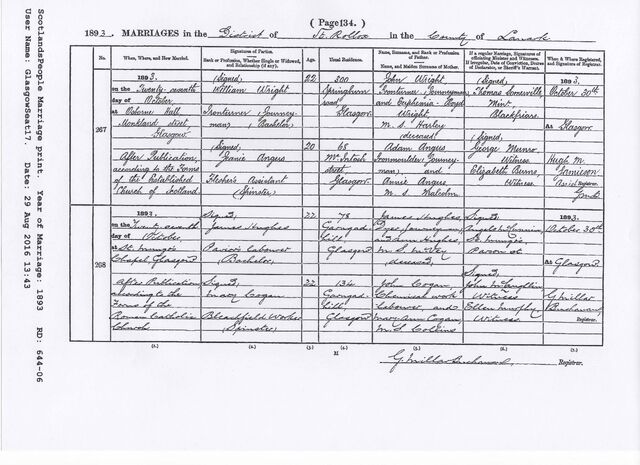 ( Page 134. )
1893. MARRIAGES in the District of St. Rollox in the County of Lanark
No.
When, Where, and How Married.
Signatures of Parties.
Rank or Profession, Whether Single or Widowed, and Relationship (if any).
Age.
Usual Residence.
Name, Surname, and Rank or Profession of Father.
Name, and Maiden Surname of Mother.
If a regular Marriage, Signatures of officiating Minister and Witnesses.
If irregular, Date of Conviction, Decree of Declarator, or Sheriff's Warrant.
When & Where Registered, and Signature of Registrar.
267
1893.
on the Twenty seventh
day of October
at Osborne Hall
Monkland street
Glasgow
After Publication,
according to the Forms
of the Established
Church of Scotland
(Signed)
William Wright
Ironturner (Journey-
man) (Bachelor)
(Signed)
Janie Angus
(Spinster)
22
20
300
Springburn
road
Glasgow
68
McIntosh
street
Glasgow
John Wright,
Ironturner, Journeyman
and Euphemia
Wright,
M.S. Harley
(deceased)
Adam Angus
Ironmoulder, Journey-
man, and
Annie Angus
M.S. Malcolm
(Signed)
Thomas Somerville
Mint.
Blackfriars.
(Signed)
George Munro
Witness
Elizabeth
Witness
1893.
October 30th
at Glasgow
Hugh M.
Jamieson
Assist Registrar.
268
1893.
on the Twenty seventh
day of October,
at St. Mungo's
Chapel Glasgow
After Publication
according to the
Forms of the
Roman Catholic
Church
Signed,
James Hughes
Pavior's Labourer
(Bachelor)
Signed,
Mary Cogan
Bleachfield Worker
(Spinster)
22
22
78
Garngad
Hill
Glasgow
134
Garngad
Hill
Glasgow
James Hughes,
Dyer, Journeyman,
and Ann Hughes,
M.S.
deceased,
John Cogan,
Chemical work
Labourer, and
Mary Ann Cogan,
M.S. Collins
Signed,
St. Mungo's
Signed,
John McLaughlin
Witness
Ellen Murphy
Witness
1893.
October 30th
at Glasgow
G. Millar
Buchanan
Registrar.
(1.) (2.) (3.) (4.) (5.) (6.) (7.)
M
G. Millar Buchanan, Registrar.
ScotlandsPeople Marriage print. Year of Marriage: 1893 RD: 644-06
User Name: GlasgowSeat17. Date: 29 Aug 2016 13:43